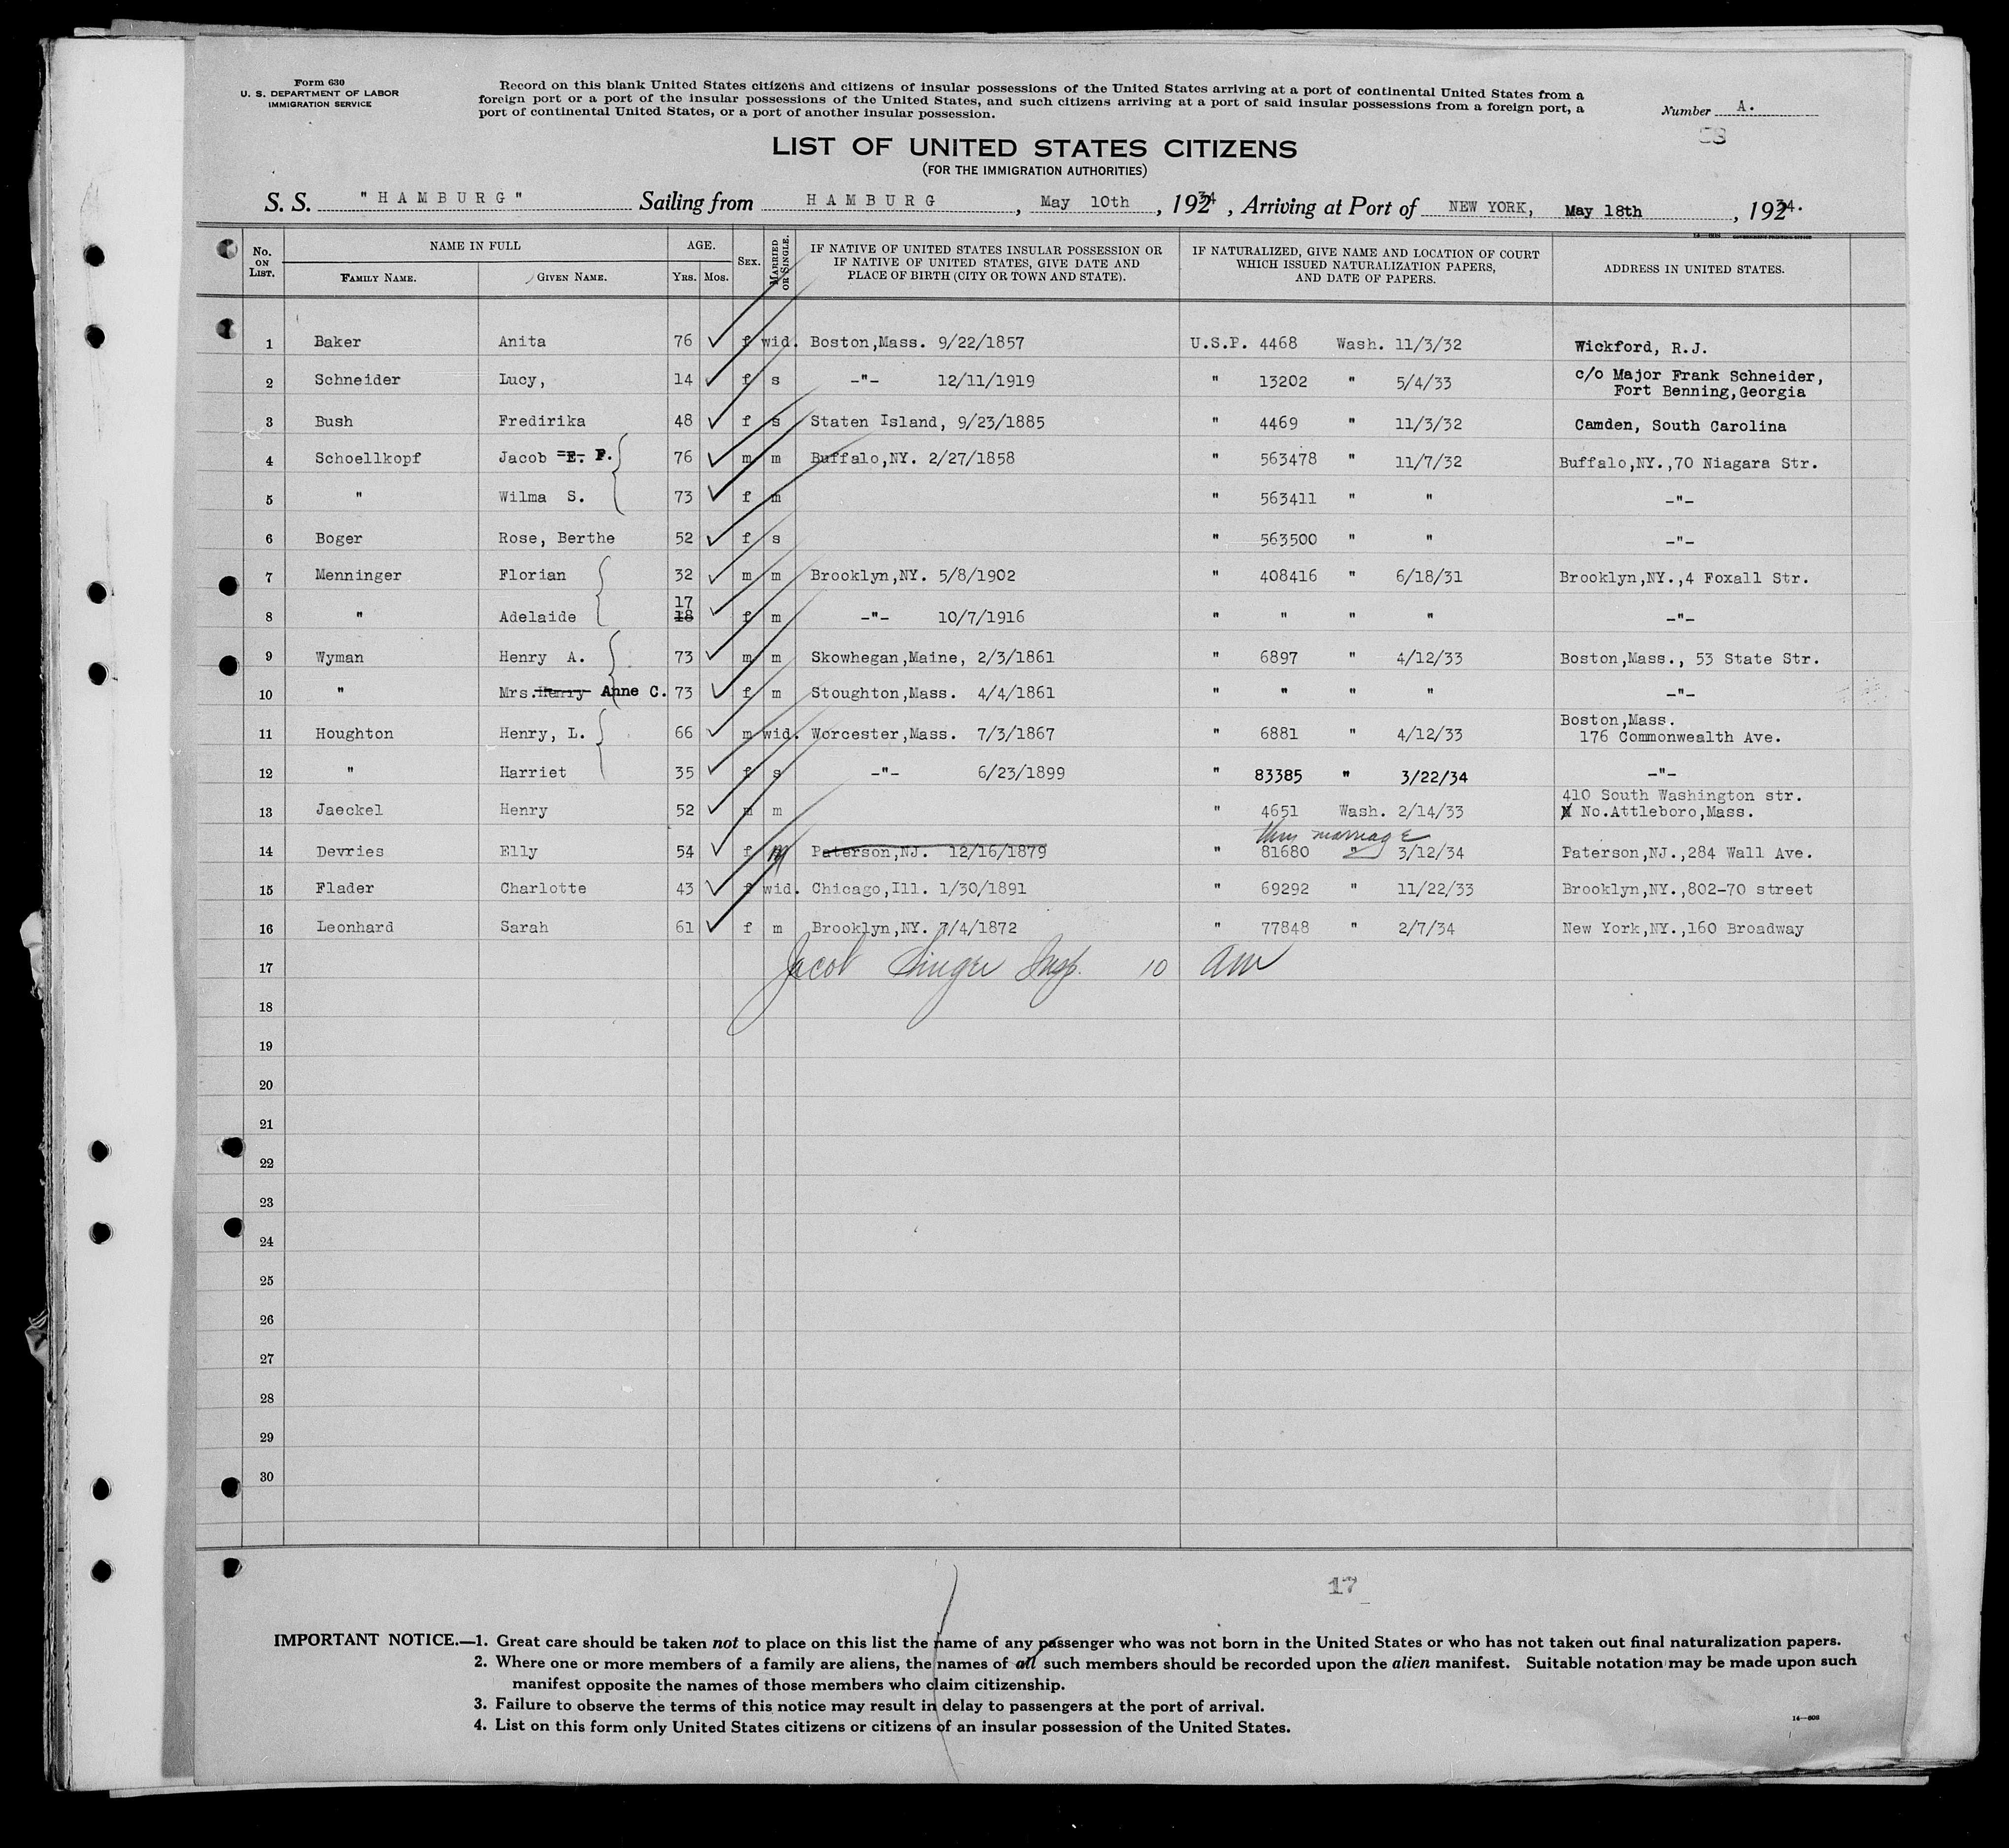 Form 630
U. S. DEPARTMENT OF LABOR
IMMIGRATION SERVICE
Record on this blank United States citizens and citizens of insular possessions of the United States arriving at a port of continental United States from a
foreign port or a port of the insular possessions of the United States, and such citizens arriving at a port of said insular possessions from a foreign port, a
port of continental United States, or a port of another insular possession.
Number A.
LIST OF UNITED STATES CITIZENS
(FOR THE IMMIGRATION AUTHORITIES)
S. S. "HAMBURG" Sailing from HAMBURG, May 10th, 1934, Arriving at Port of NEW YORK, May 18th, 1934.
No. ON LIST. NAME IN FULL AGE. SEX. MARRIED OR SINGLE. IF NATIVE OF UNITED STATES INSULAR POSSESSION OR IF NATIVE OF UNITED STATES, GIVE DATE AND PLACE OF BIRTH (CITY OR TOWN AND STATE). IF NATURALIZED, GIVE NAME AND LOCATION OF COURT WHICH ISSUED NATURALIZATION PAPERS, AND DATE OF PAPERS. ADDRESS IN UNITED STATES.
FAMILY NAME. GIVEN NAME. YRS. MOS.
1 Baker Anita 76 f wid. Boston,Mass. 9/22/1857 U.S.P. 4468 Wash. 11/3/32 Wickford, R.J.
2 Schneider Lucy, 14 f s -"- 12/11/1919 " 13202 " 5/4/33 c/o Major Frank Schneider,
Fort Benning,Georgia
3 Bush Fredirika 48 f s Staten Island, 9/23/1885 " 4469 " 11/3/32 Camden, South Carolina
4 Schoellkopf Jacob E. F. 76 m m Buffalo,NY. 2/27/1858 " 563478 " 11/7/32 Buffalo,NY.,70 Niagara Str.
5 " Wilma S. 73 f m " 563411 " " -"-
6 Boger Rose, Berthe 52 f s " 563500 " " -"-
7 Menninger Florian 32 m m Brooklyn,NY. 5/8/1902 " 408416 " 6/18/31 Brooklyn,NY.,4 Foxall Str.
17
8 " Adelaide 18 f m -"- 10/7/1916 " " " " -"-
9 Wyman Henry A. 73 m m Skowhegan,Maine, 2/3/1861 " 6897 " 4/12/33 Boston,Mass., 53 State Str.
10 " Mrs.Henry Anne C. 73 f m Stoughton,Mass. 4/4/1861 " " " " -"-
11 Houghton Henry, L. 66 m wid. Worcester,Mass. 7/3/1867 " 6881 " 4/12/33 Boston,Mass.
176 Commonwealth Ave.
12 " Harriet 35 f s -"- 6/23/1899 " 83385 " 3/22/34 -"-
410 South Washington str.
13 Jaeckel Henry 52 m m " 4651 Wash. 2/14/33 No.Attleboro,Mass.
thru marriage
14 Devries Elly 54 f m Paterson,NJ. 12/16/1879 " 81680 " 3/12/34 Paterson,NJ.,284 Wall Ave.
15 Flader Charlotte 43 f wid. Chicago,Ill. 1/30/1891 " 69292 " 11/22/33 Brooklyn,NY.,802-70 street
16 Leonhard Sarah 61 f m Brooklyn,NY. 7/4/1872 " 77848 " 2/7/34 New York,NY.,160 Broadway
17 Jacob Singer Insp. 10 am
18
19
20
21
22
23
24
25
26
27
28
29
30
17
IMPORTANT NOTICE.—1. Great care should be taken not to place on this list the name of any passenger who was not born in the United States or who has not taken out final naturalization papers.
2. Where one or more members of a family are aliens, the names of all such members should be recorded upon the alien manifest. Suitable notation may be made upon such
manifest opposite the names of those members who claim citizenship.
3. Failure to observe the terms of this notice may result in delay to passengers at the port of arrival.
4. List on this form only United States citizens or citizens of an insular possession of the United States.